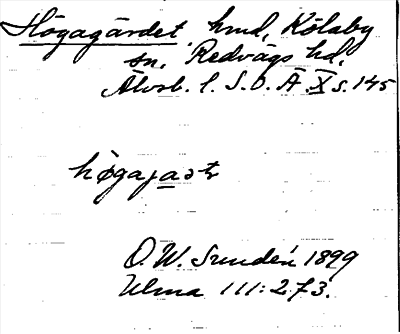 Högagärdet hmd, Kölaby
sn, Redvägs hd,
Älvsb. l. S.O.Ä. X s. 145
högajaʂtɹ
O. W. Sundén 1899
Ulma 111:273.